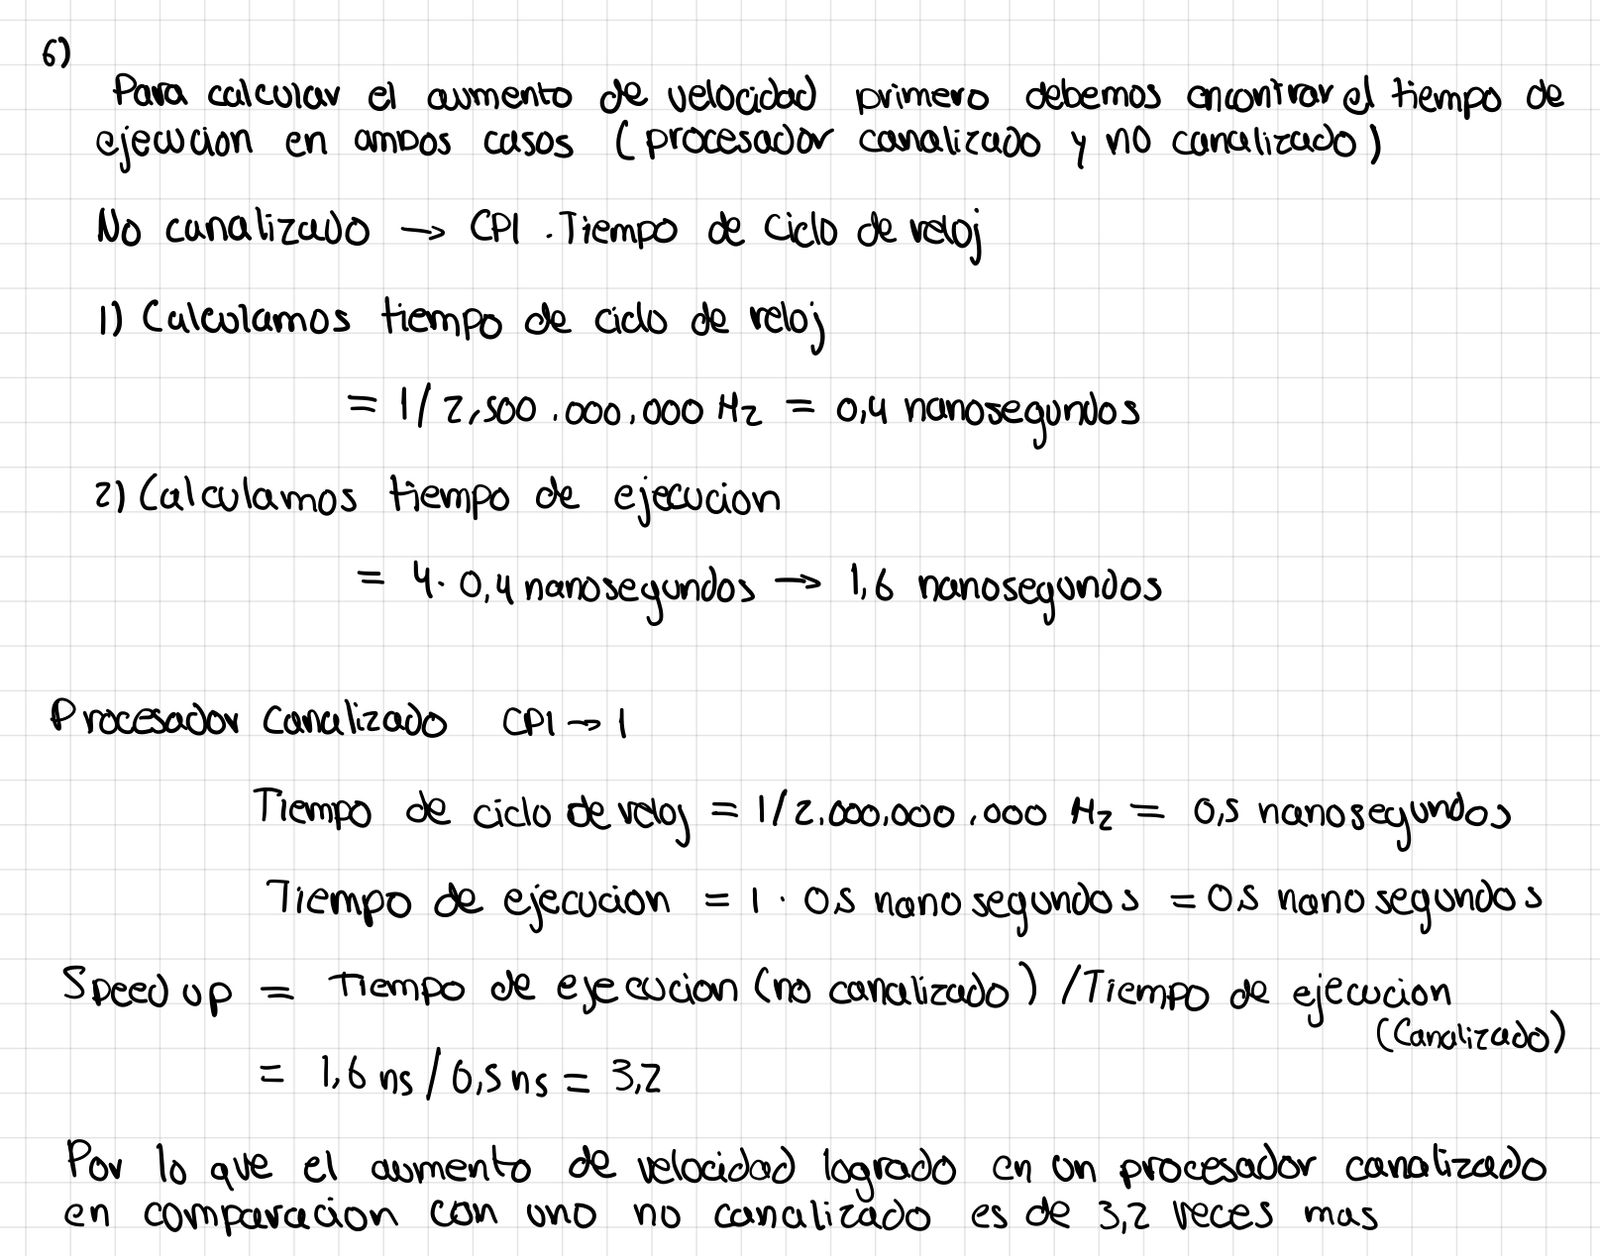 6)
Para calcular el aumento de velocidad primero debemos encontrar el tiempo de
ejecucion en ambos casos (procesador canalizado y no canalizado)
No canalizado → CPI . Tiempo de ciclo de reloj
1) Calculamos tiempo de ciclo de reloj
= 1/2,500.000,000 Hz = 0,4 nanosegundos
2) Calculamos tiempo de ejecucion
= 4. 0,4 nanosegundos → 1,6 nanosegundos
Procesador canalizado CPI → 1
Tiempo de ciclo de reloj = 1/2.000,000.000 Hz = 0,5 nanosegundos
Tiempo de ejecucion = 1 . 0.5 nano segundos = 0.5 nano segundos
Speed up = Tiempo de ejecucion (no canalizado) / Tiempo de ejecucion
(Canalizado)
= 1,6 ns / 0,5 ns = 3,2
Por lo que el aumento de velocidad logrado en un procesador canalizado
en comparacion con uno no canalizado es de 3,2 veces mas